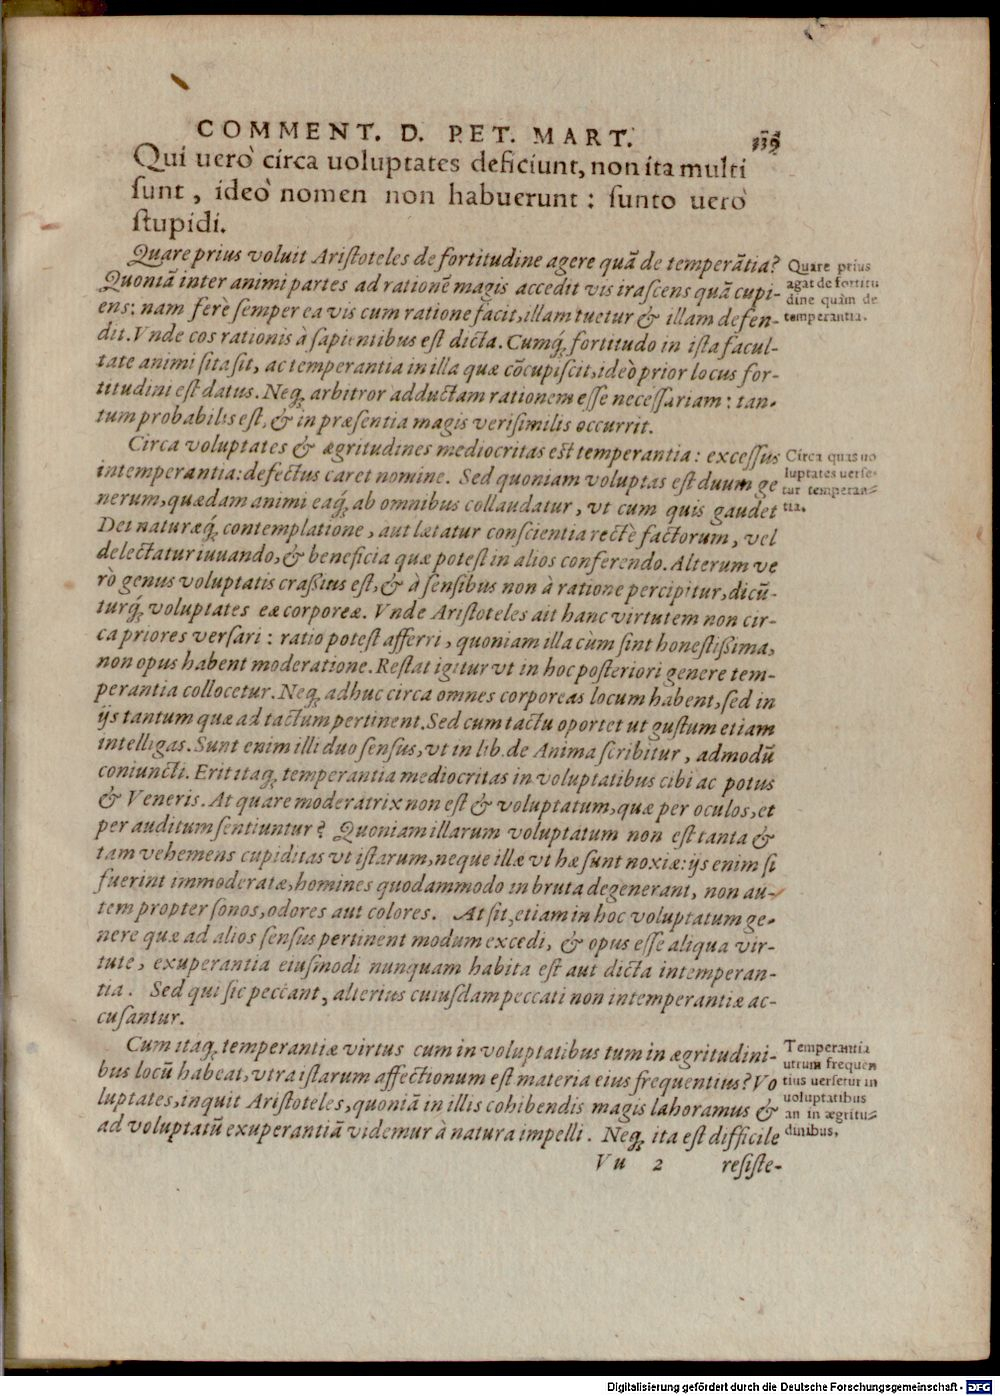 COMMENT. D. PET. MART.
Qui uerò circa uoluptates deficiunt, non ita multi
sunt, ideò nomen non habuerunt: sunto uerò
stupidi.
Quare prius voluit Aristoteles de fortitudine agere quā de temperātia?
Quoniā inter animi partes ad rationē magis accedit vis irascens quā cupi-
ens: nam ferè semper ea vis cum ratione facit, illam tuetur & illam defen-
dit. Vnde cos rationis à sapientibus est dicta. Cumq́; fortitudo in ista facul-
tate animi sita sit, ac temperantia in illa quæ cōcupiscit, ideò prior locus for-
titudini est datus. Neq; arbitror adductam rationem esse necessariam: tan-
tum probabilis est, & in præsentia magis verisimilis occurrit.
Quare prius
agat de fortitu
dine quàm de
temperantia.
Circa voluptates & ægritudines mediocritas est temperantia: excessus
intemperantia: defectus caret nomine. Sed quoniam voluptas est duum ge
nerum, quædam animi eaq́; ab omnibus collaudatur, vt cum quis gaudet
Dei naturæq́; contemplatione, aut lætatur conscientia rectè factorum, vel
delectatur iuuando, & beneficia quæ potest in alios conferendo. Alterum ve
rò genus voluptatis crassius est, & à sensibus non à ratione percipitur, dicū-
turq́; voluptates eæ corporeæ. Vnde Aristoteles ait hanc virtutem non cir-
ca priores versari: ratio potest afferri, quoniam illa cùm sint honestissima,
non opus habent moderatione. Restat igitur vt in hoc posteriori genere tem-
perantia collocetur. Neq; adhuc circa omnes corporeas locum habent, sed in
ijs tantum quæ ad tactum pertinent. Sed cum tactu oportet ut gustum etiam
intelligas. Sunt enim illi duo sensus, vt in lib. de Anima scribitur, admodū
coniuncti. Erit itaq; temperantia mediocritas in voluptatibus cibi ac potus
& Veneris. At quare moderatrix non est & voluptatum, quæ per oculos, et
per auditum sentiuntur? Quoniam illarum voluptatum non est tanta &
tam vehemens cupiditas vt istarum, neque illæ vt hæ sunt noxiæ: ijs enim si
fuerint immoderatæ, homines quodammodo in bruta degenerant, non au-
tem propter sonos, odores aut colores. At sit, etiam in hoc voluptatum ge-
nere quæ ad alios sensus pertinent modum excedi, & opus esse aliqua vir-
tute, exuperantia eiusmodi nunquam habita est aut dicta intemperan-
tia. Sed qui sic peccant, alterius cuiusdam peccati non intemperantiæ ac-
cusantur.
Circa quas uo
luptates uerse-
tur temperan-
tia.
Cum itaq; temperantiæ virtus cum in voluptatibus tum in ægritudini-
bus locū habeat, vtra istarum affectionum est materia eius frequentius? Vo
luptates, inquit Aristoteles, quoniā in illis cohibendis magis laboramus &
ad voluptatū exuperantiā videmur à natura impelli. Neq; ita est difficile
Temperantia
utrum frequen
tius uersetur in
uoluptatibus
an in ægritu-
dinibus.
Vu 2 resiste-
Digitalisierung gefördert durch die Deutsche Forschungsgemeinschaft - DFG